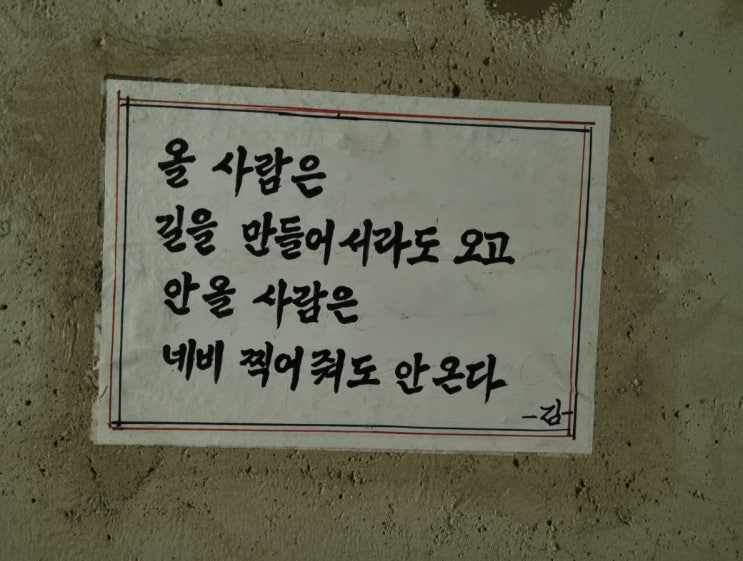 올 사람은
길을 만들어서라도 오고
안 올 사람은
네비 찍어줘도 안 온다
-김-